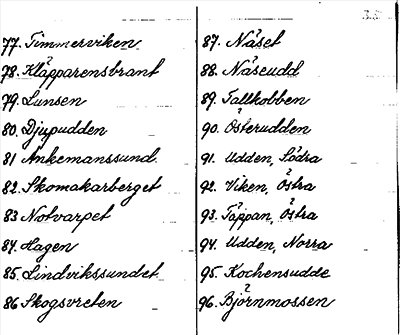 77. Timmerviken
78. Kläpparensbrant
79. Lunsen
80. Djupudden
81 Ankemanssund.
82. Skomakarberget
83 Notvarpet
84. Hagen
85. Lindvikssundet
86 Skogsvreten
87. Näset
88. Näsudd
89. Tallkobben
90. Österudden
91. Udden, Södra
92. Viken, Östra
93. Täppan, Östra
94. Udden, Norra
95. Kochensudde
96. Björnmossen